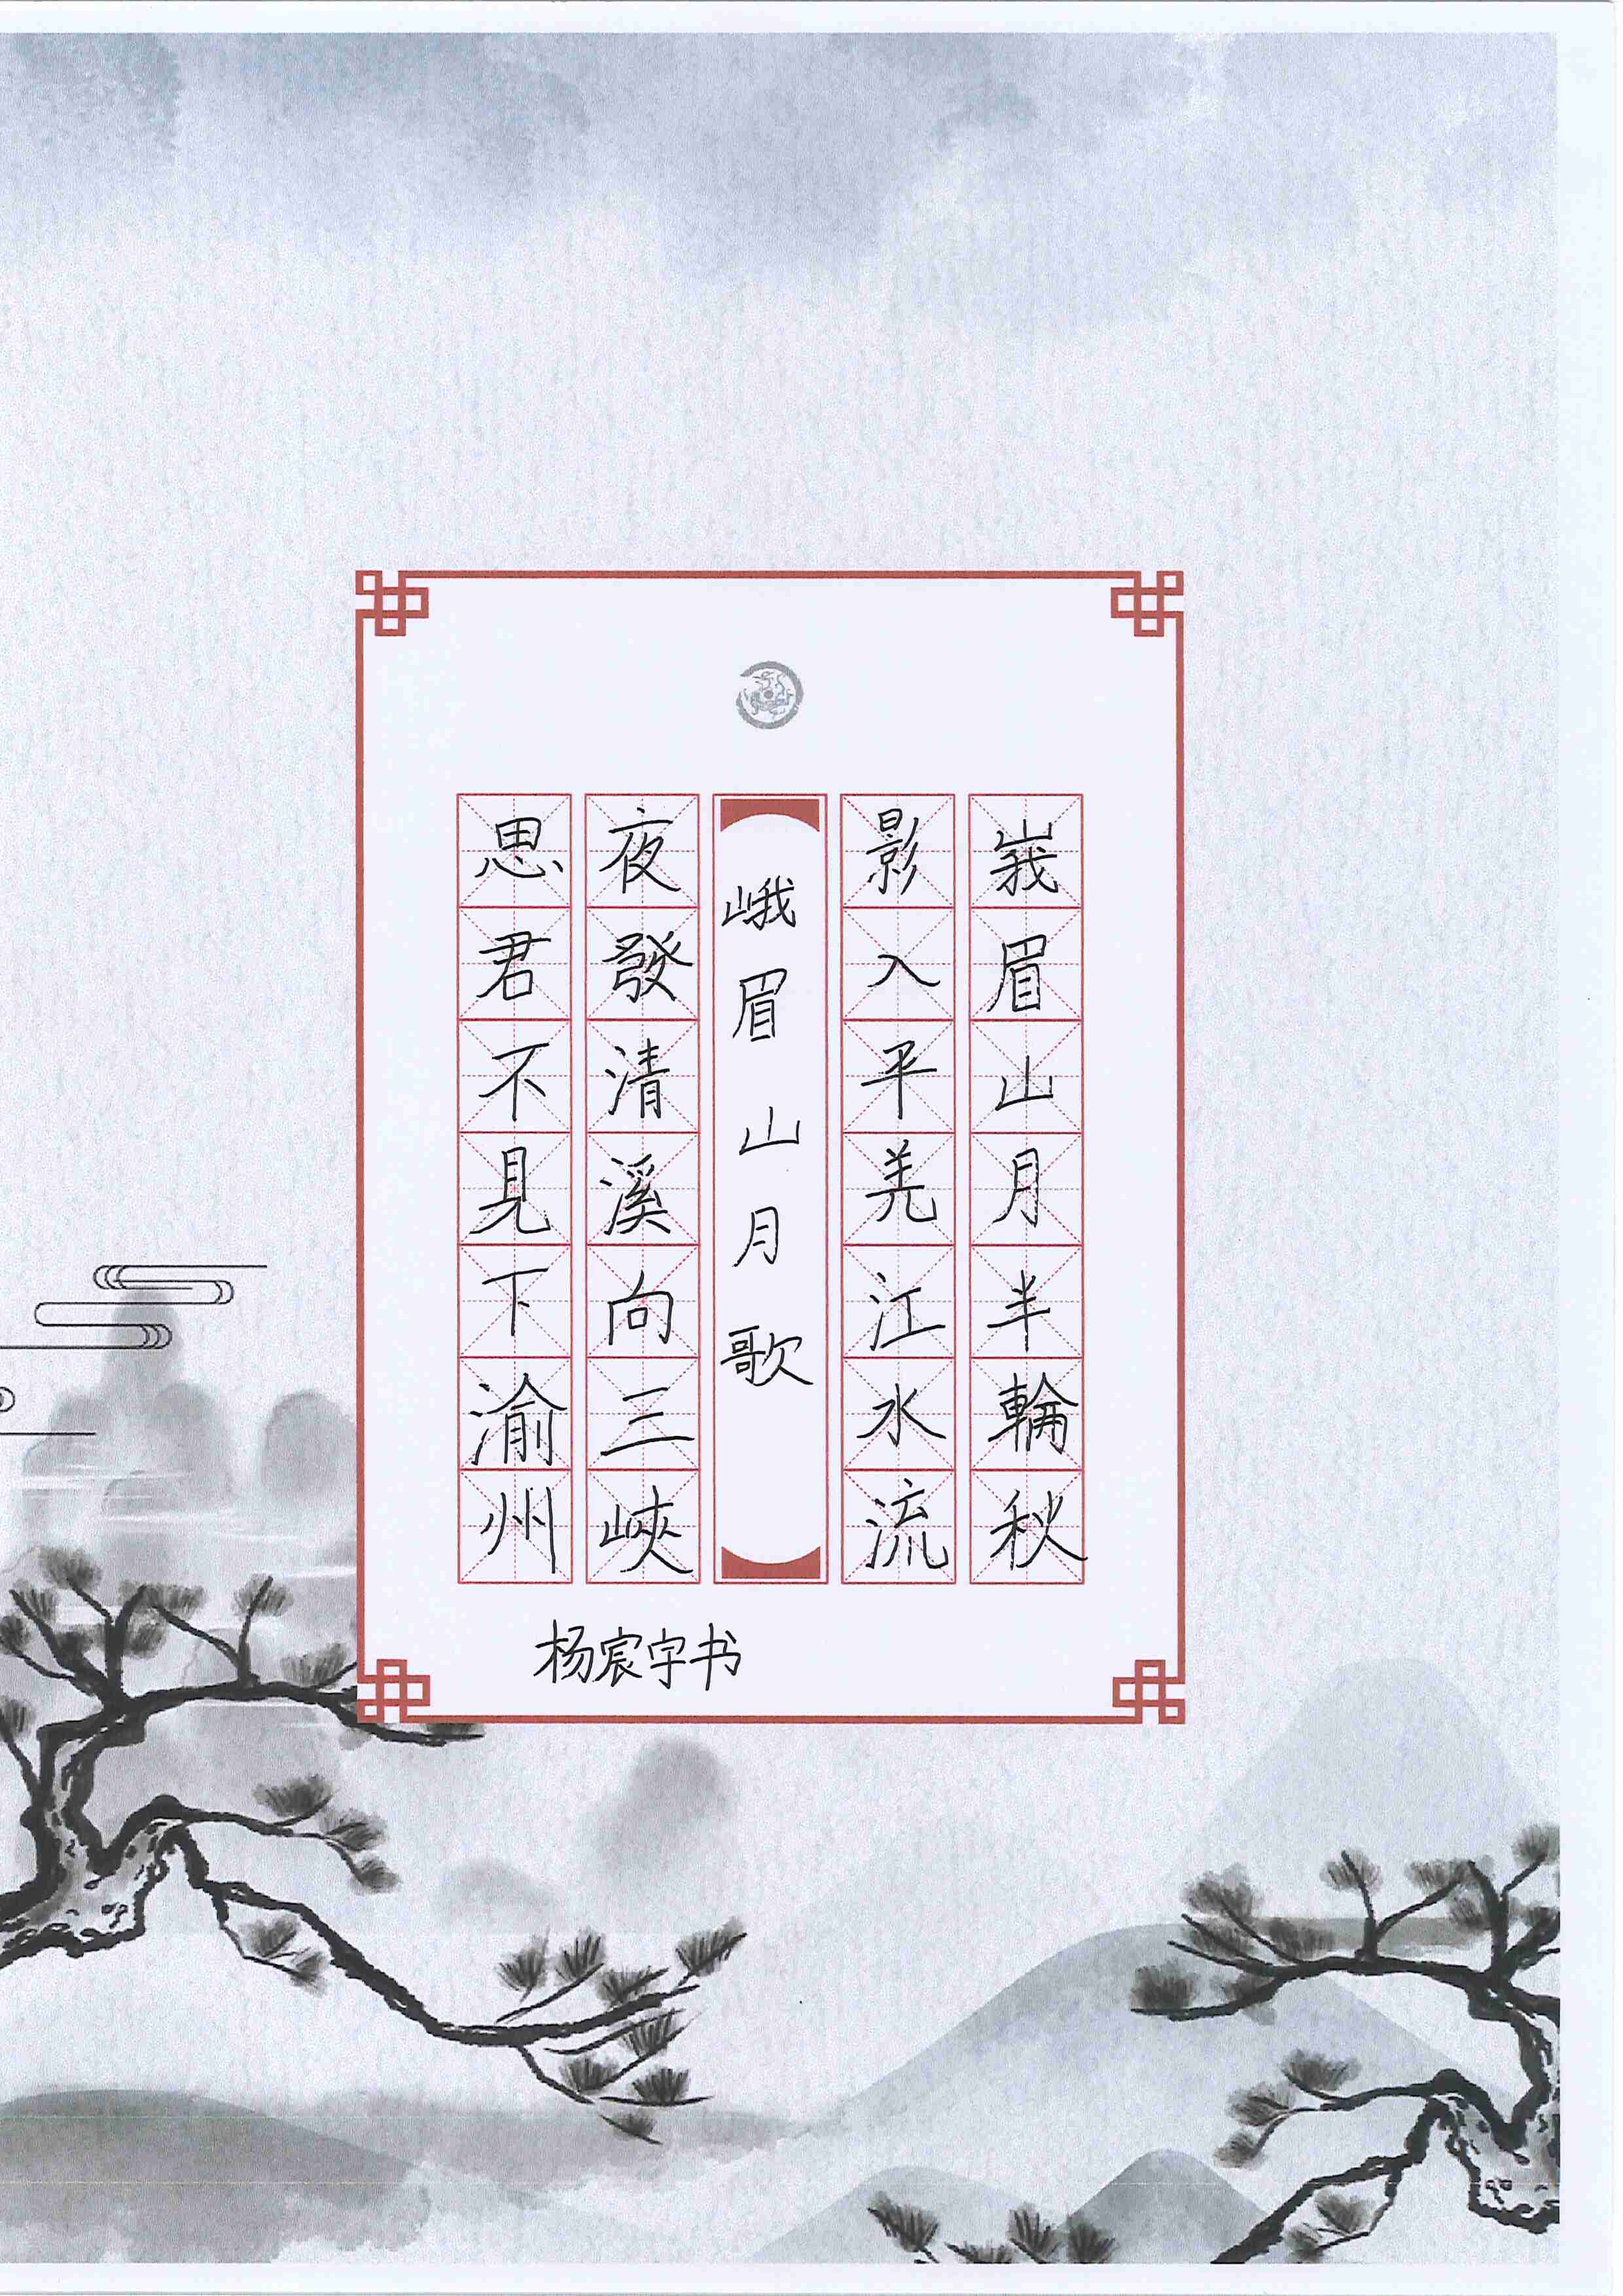 峩眉山月半輪秋
影入平羌江水流
峨眉山月歌
夜發清溪向三峽
思君不見下渝州
杨宸宇书